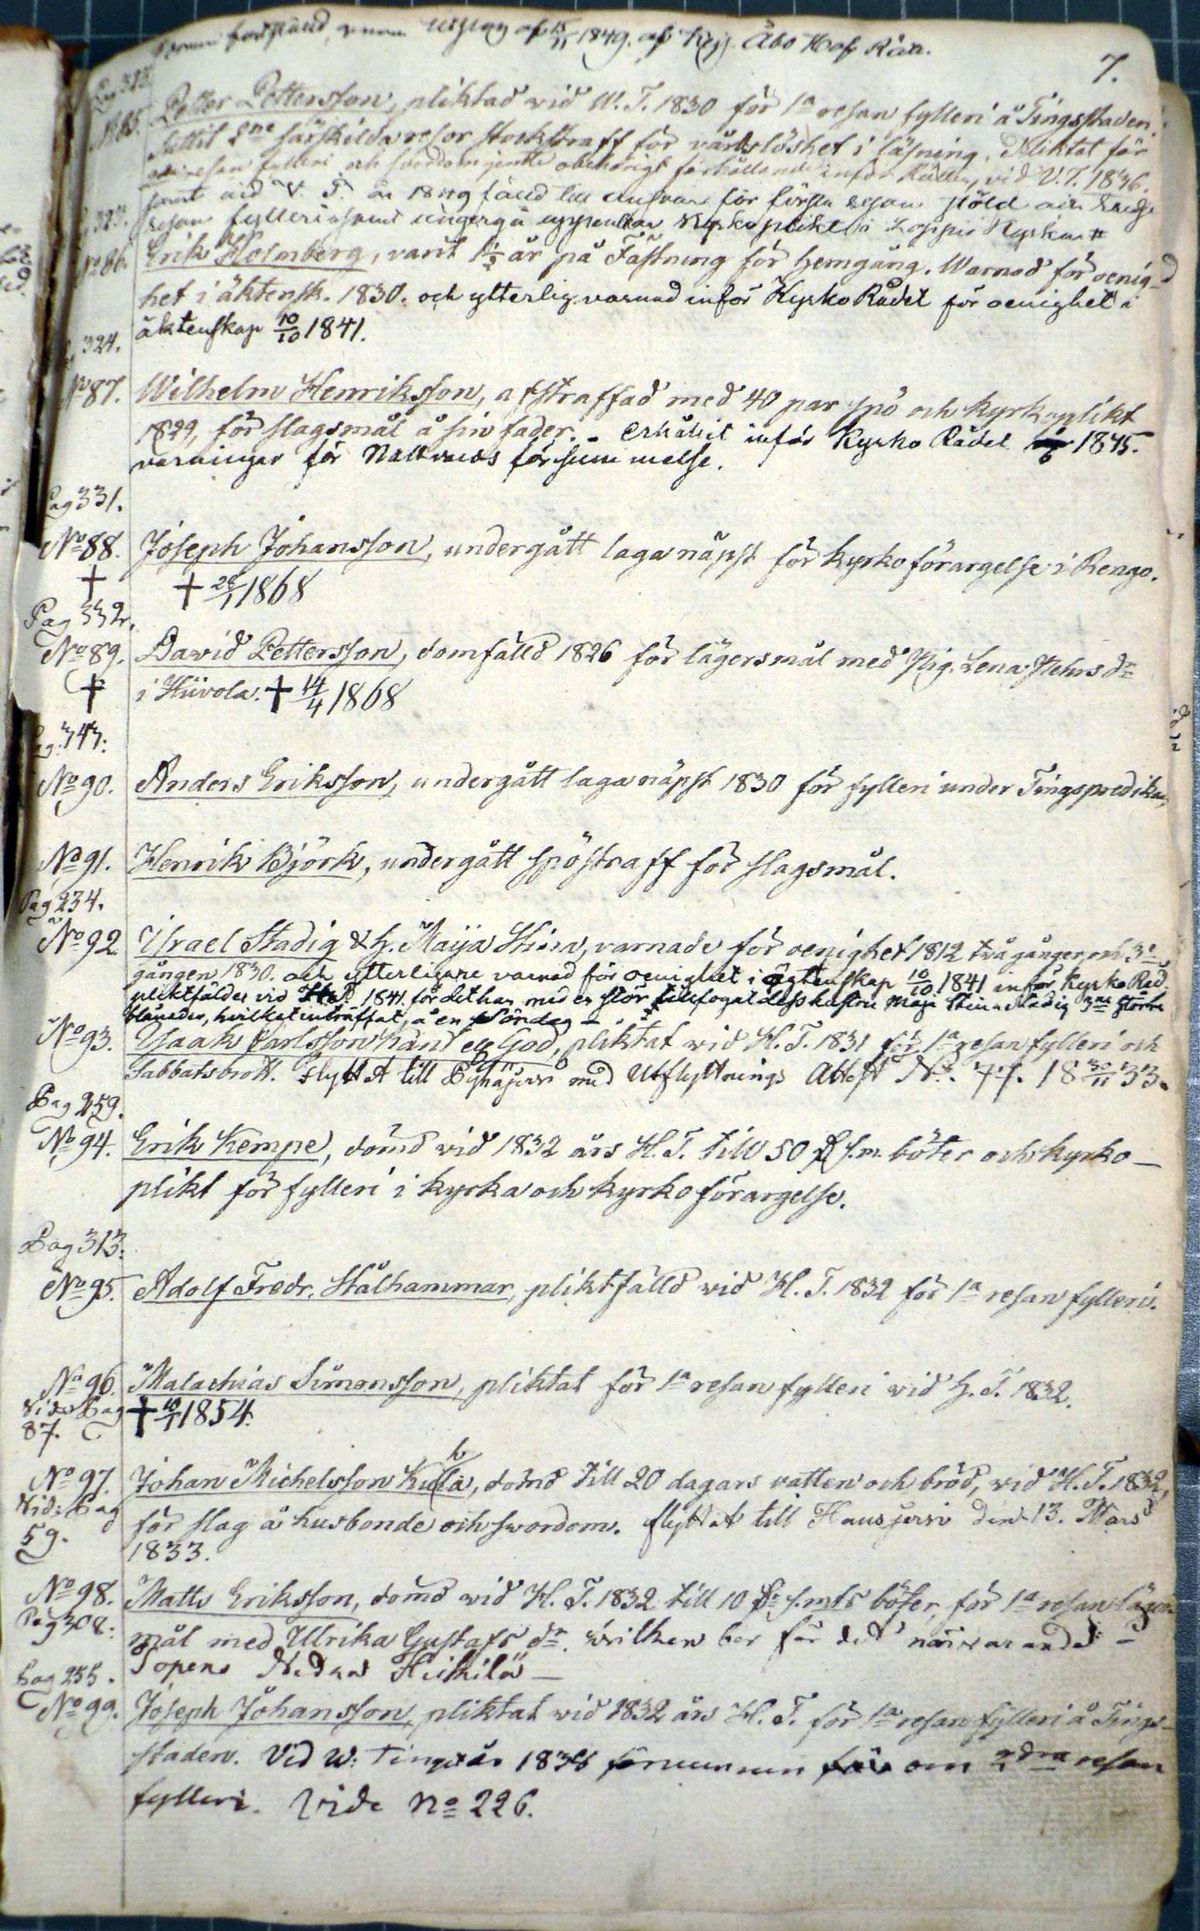 genom Utslag af 15/11 1849. af Kejs. Åbo Hof Rätt.
7.
Pag 325.
No 85. Petter Pettersson, pliktad vid W. T. 1830 för 1a resan fylleri å Tingsstaden.
Suttit 2ne särskilda resor stockstraff för vårdslöshet i läsning. Pliktat för
resan fylleri och obehörigt förhållande inför Rätten, vid V.T. 1836.
samt vid V. T. år 1849 fälld till ansvar för första resan stöld och tredje
resan fylleri samt undergå uppenbar Kyrkoplikt i Loppis Kyrka #
323.
No 86. Erik Holmberg, varit 1 1/2 år på Fästning för hemgång. Warnad för oenig-
het i äktensk. 1830. och ytterlig. varnad inför Kyrko Rådet för oenighet i
äktenskap 10/10 1841.
324.
No 87. Wilhelm Henriksson, afstraffad med 40 par spö och kyrkoplikt
1829, för slagsmål å sin fader. - Erhållit inför Kyrko Rådet 1845.
varningar för Nattvards försummelse.
Pag 331.
No 88. Joseph Johansson, undergått laga näpst för kyrkoförargelse i Rengo.
† † 28/1 1868
Pag 332.
No 89. David Pettersson, domfälld 1826 för lägersmål med Pig. Lena Mehsdr
† i Hiivola. † 14/4 1868
Pag. 343:
No 90. Anders Eriksson, undergått laga näpst 1830 för fylleri under Tingspredikan
No 91. Henrik Björk, undergått spöstraff för slagsmål.
Pag 234.
No 92. Israel Stadig & H. Maija Stina, varnade för oenighet 1812 två gånger och 3e
gången 1830. och ytterligare varnad för oenighet i äktenskap 10/10 1841 inför Kyrko Råd.
pliktfälder vid H.T. 1841. för det han med en stör tillfogat dess hustru Maja Stina Stadig 3ne större
blånader, hvilket inträffat å en Söndag —
No 93. Isaak Carlsson hind eg God, pliktat vid H. T. 1831 för 1a resan fylleri och
Sabbatsbrott. Flyttat till Pyhäjärvi med Utflyttnings Attest No. 77. 18 30/11 33.
Pag 259.
No 94. Erik Kempe, dömd vid 1832 års H. T. till 50 R s.m. böter och kyrko-
plikt för fylleri i kyrka och kyrkoförargelse.
Pag 313:
No 95. Adolf Fredr. Stålhammar, pliktfälld vid H. T. 1832 för 1a resan fylleri.
No 96. Malachias Simonsson, pliktat för 1a resan fylleri vid H. T. 1832.
Vide Pag 87. † 10/1 1854.
No 97. Johan Michelsson Kula, dömd till 20 dagars vatten och bröd, vid H. T. 1832,
Vide Pag för slag å husbonde och swordom. flyttat till Hausjervi den 13. Mars
59. 1833.
No 98. Matts Eriksson, dömd vid H. T. 1832 till 10 Rr s.mts böter, för 1a resan läger-
Pag 308: mål med Ullrika Gustafs dr. hvilken bor för det närvarande -
Topeno Nedra Heikkilä —
Pag 255.
No 99. Joseph Johansson, pliktat vid 1832 års H. T. för 1a resan fylleri å Tings-
staden. Vid W. Tinget år 1836 förvunnen om 2dra resan
fylleri. Vide No 226.